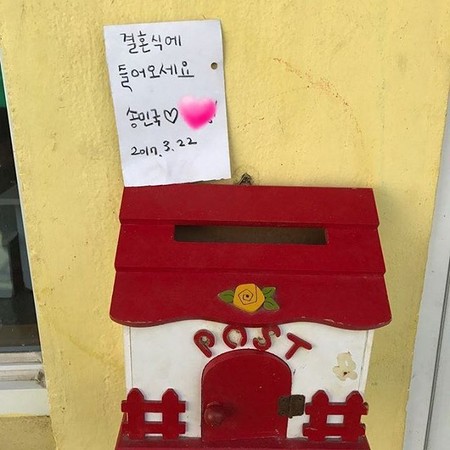 결혼식에
들어오세요
송민국♡
2017.3.22
POST